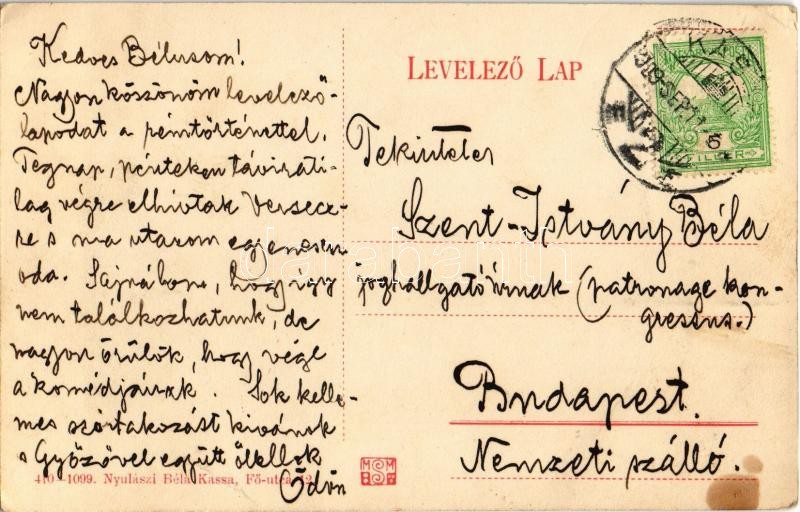 Kedves Bélusom!
Nagyon köszönöm levelező-
lapodat a péntörténettel.
Tegnap, pénteken távirati-
lag végre elhívtak Versecz-
re s ma utazom egyenesen
oda. Sajnálom, hogy így
nem találkozhatunk, de
nagyon örülök, hogy vége
a komédjának. Sok kelle-
mes szórakozást kívánok
s Győzővel együtt ölellek
Ödön
410—1099. Nyulászi Béla Kassa, Fő-utca
LEVELEZŐ LAP
Tekintetes
Szent-Istvány Béla
joghallgató úrnak (patronage kon-
gressus.)
Budapest.
Nemzeti szálló.
KAS
FILLER
6
darabanth